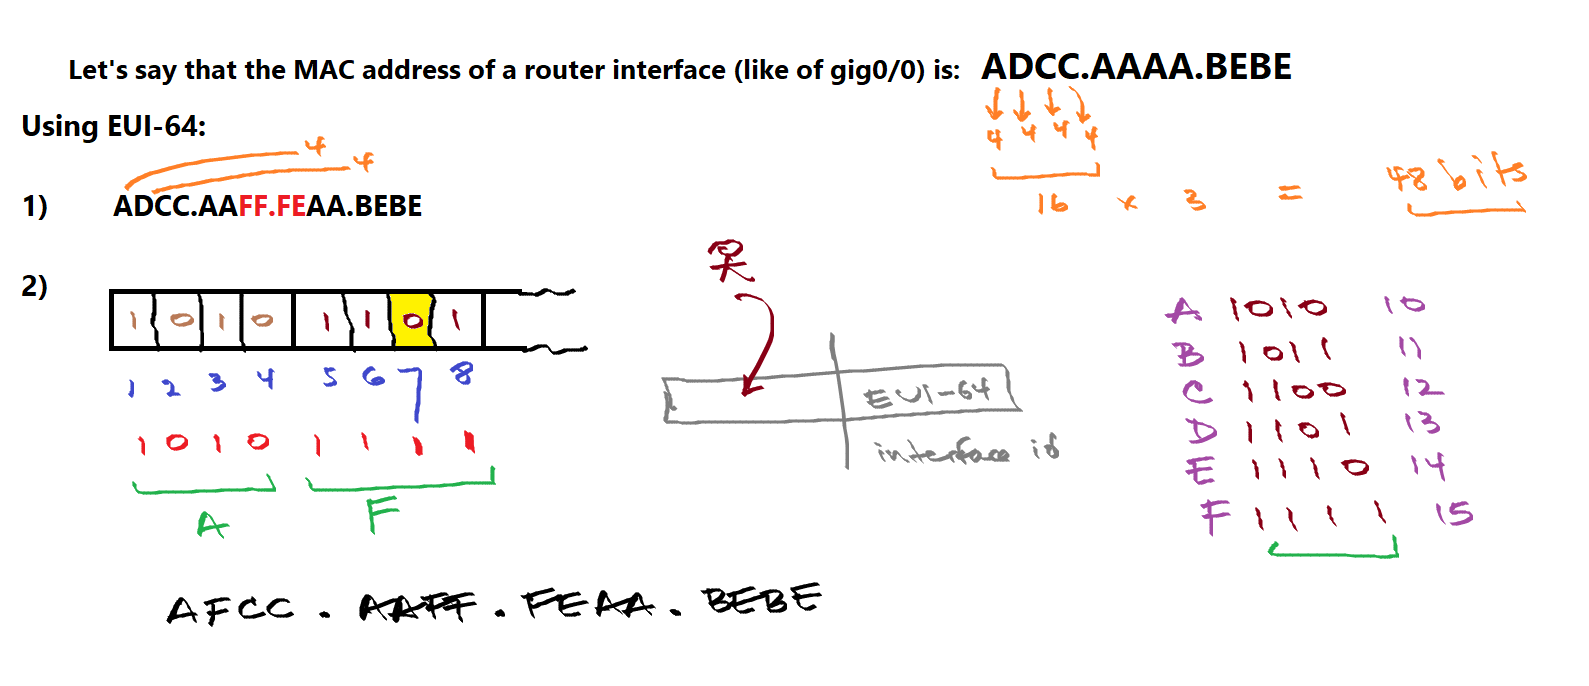 Let's say that the MAC address of a router interface (like of gig0/0) is: ADCC.AAAA.BEBE
4 4 4 4
16 x 3 = 48 bits
Using EUI-64:
4
4
1) ADCC.AAFF.FEAA.BEBE
2)
1 0 1 0 1 1 0 1
1 2 3 4 5 6 7 8
1 0 1 0 1 1 1 1
A F
EUI-64
interface id
A 1010 10
B 1011 11
C 1100 12
D 1101 13
E 1110 14
F 1111 15
AFCC . AAFF . FEAA . BEBE